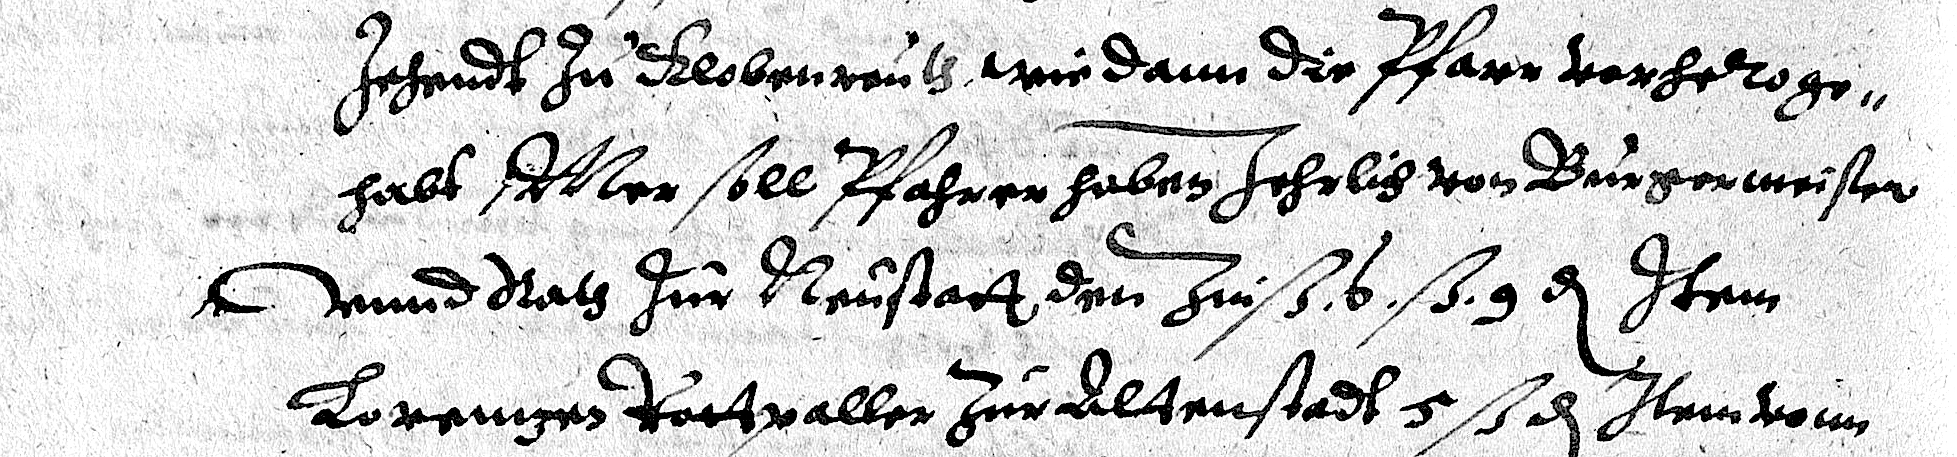 Zehendt Zu Klobenreuth, wie dann die Pfarr vorhero ge„
habt Mer soll Pfahrer haben Jehrlich von Burgermeister
vnnd Rath Zur Neustatt, den Zinß. 6. ß. 9 d Item
Lorenzen zur Altenstadt 5 ß d Item vonn